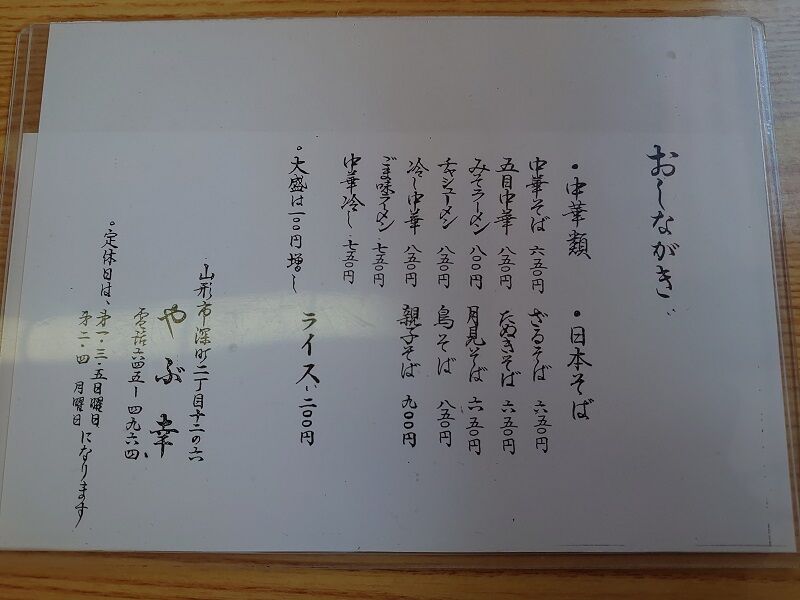 おしながき
・中華類
中華そば 六五〇円
五目中華 八五〇円
みそラーメン 八〇〇円
チャシューメン 八五〇円
冷し中華 八五〇円
ごま味ラーメン 七五〇円
中華冷し 七五〇円
・日本そば
ざるそば 六五〇円
たぬきそば 六五〇円
月見そば 六五〇円
鳥そば 八五〇円
親子そば 九〇〇円
。大盛は一〇〇円増し
ライス 二〇〇円
山形市深町二丁目十二の六
やぶ幸
電話六四五ー四九六四
。定休日は、第一・三・五日曜日
第二・四 月曜日になります